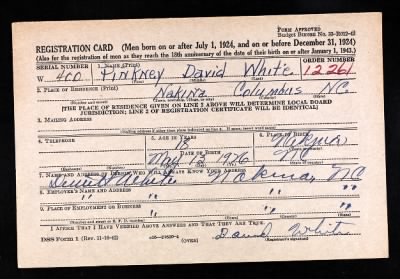 Form Approved
Budget Bureau No. 33-R012-42
REGISTRATION CARD (Men born on or after July 1, 1924, and on or before December 31, 1924)
(Also for the registration of men as they reach the 18th anniversary of the date of their birth on or after January 1, 1943.)
SERIAL NUMBER 1. NAME (Print) ORDER NUMBER
W 400 Pinkney David White 12261
2. PLACE OF RESIDENCE (Print)
Nakina Columbus N.C.
[THE PLACE OF RESIDENCE GIVEN ON LINE 2 ABOVE WILL DETERMINE LOCAL BOARD
JURISDICTION; LINE 2 OF REGISTRATION CERTIFICATE WILL BE IDENTICAL]
3. MAILING ADDRESS
4. TELEPHONE 5. AGE IN YEARS 6. PLACE OF BIRTH
18 Nakina
DATE OF BIRTH
May 12 1926 NC
7. NAME AND ADDRESS OF PERSON WHO WILL ALWAYS KNOW YOUR ADDRESS
White Nakina NC
8. EMPLOYER'S NAME AND ADDRESS
9. PLACE OF EMPLOYMENT OR BUSINESS
I AFFIRM THAT I HAVE VERIFIED ABOVE ANSWERS AND THAT THEY ARE TRUE.
DSS Form 1 (Rev. 11-16-42) (OVER) David White
(Registrant's signature)